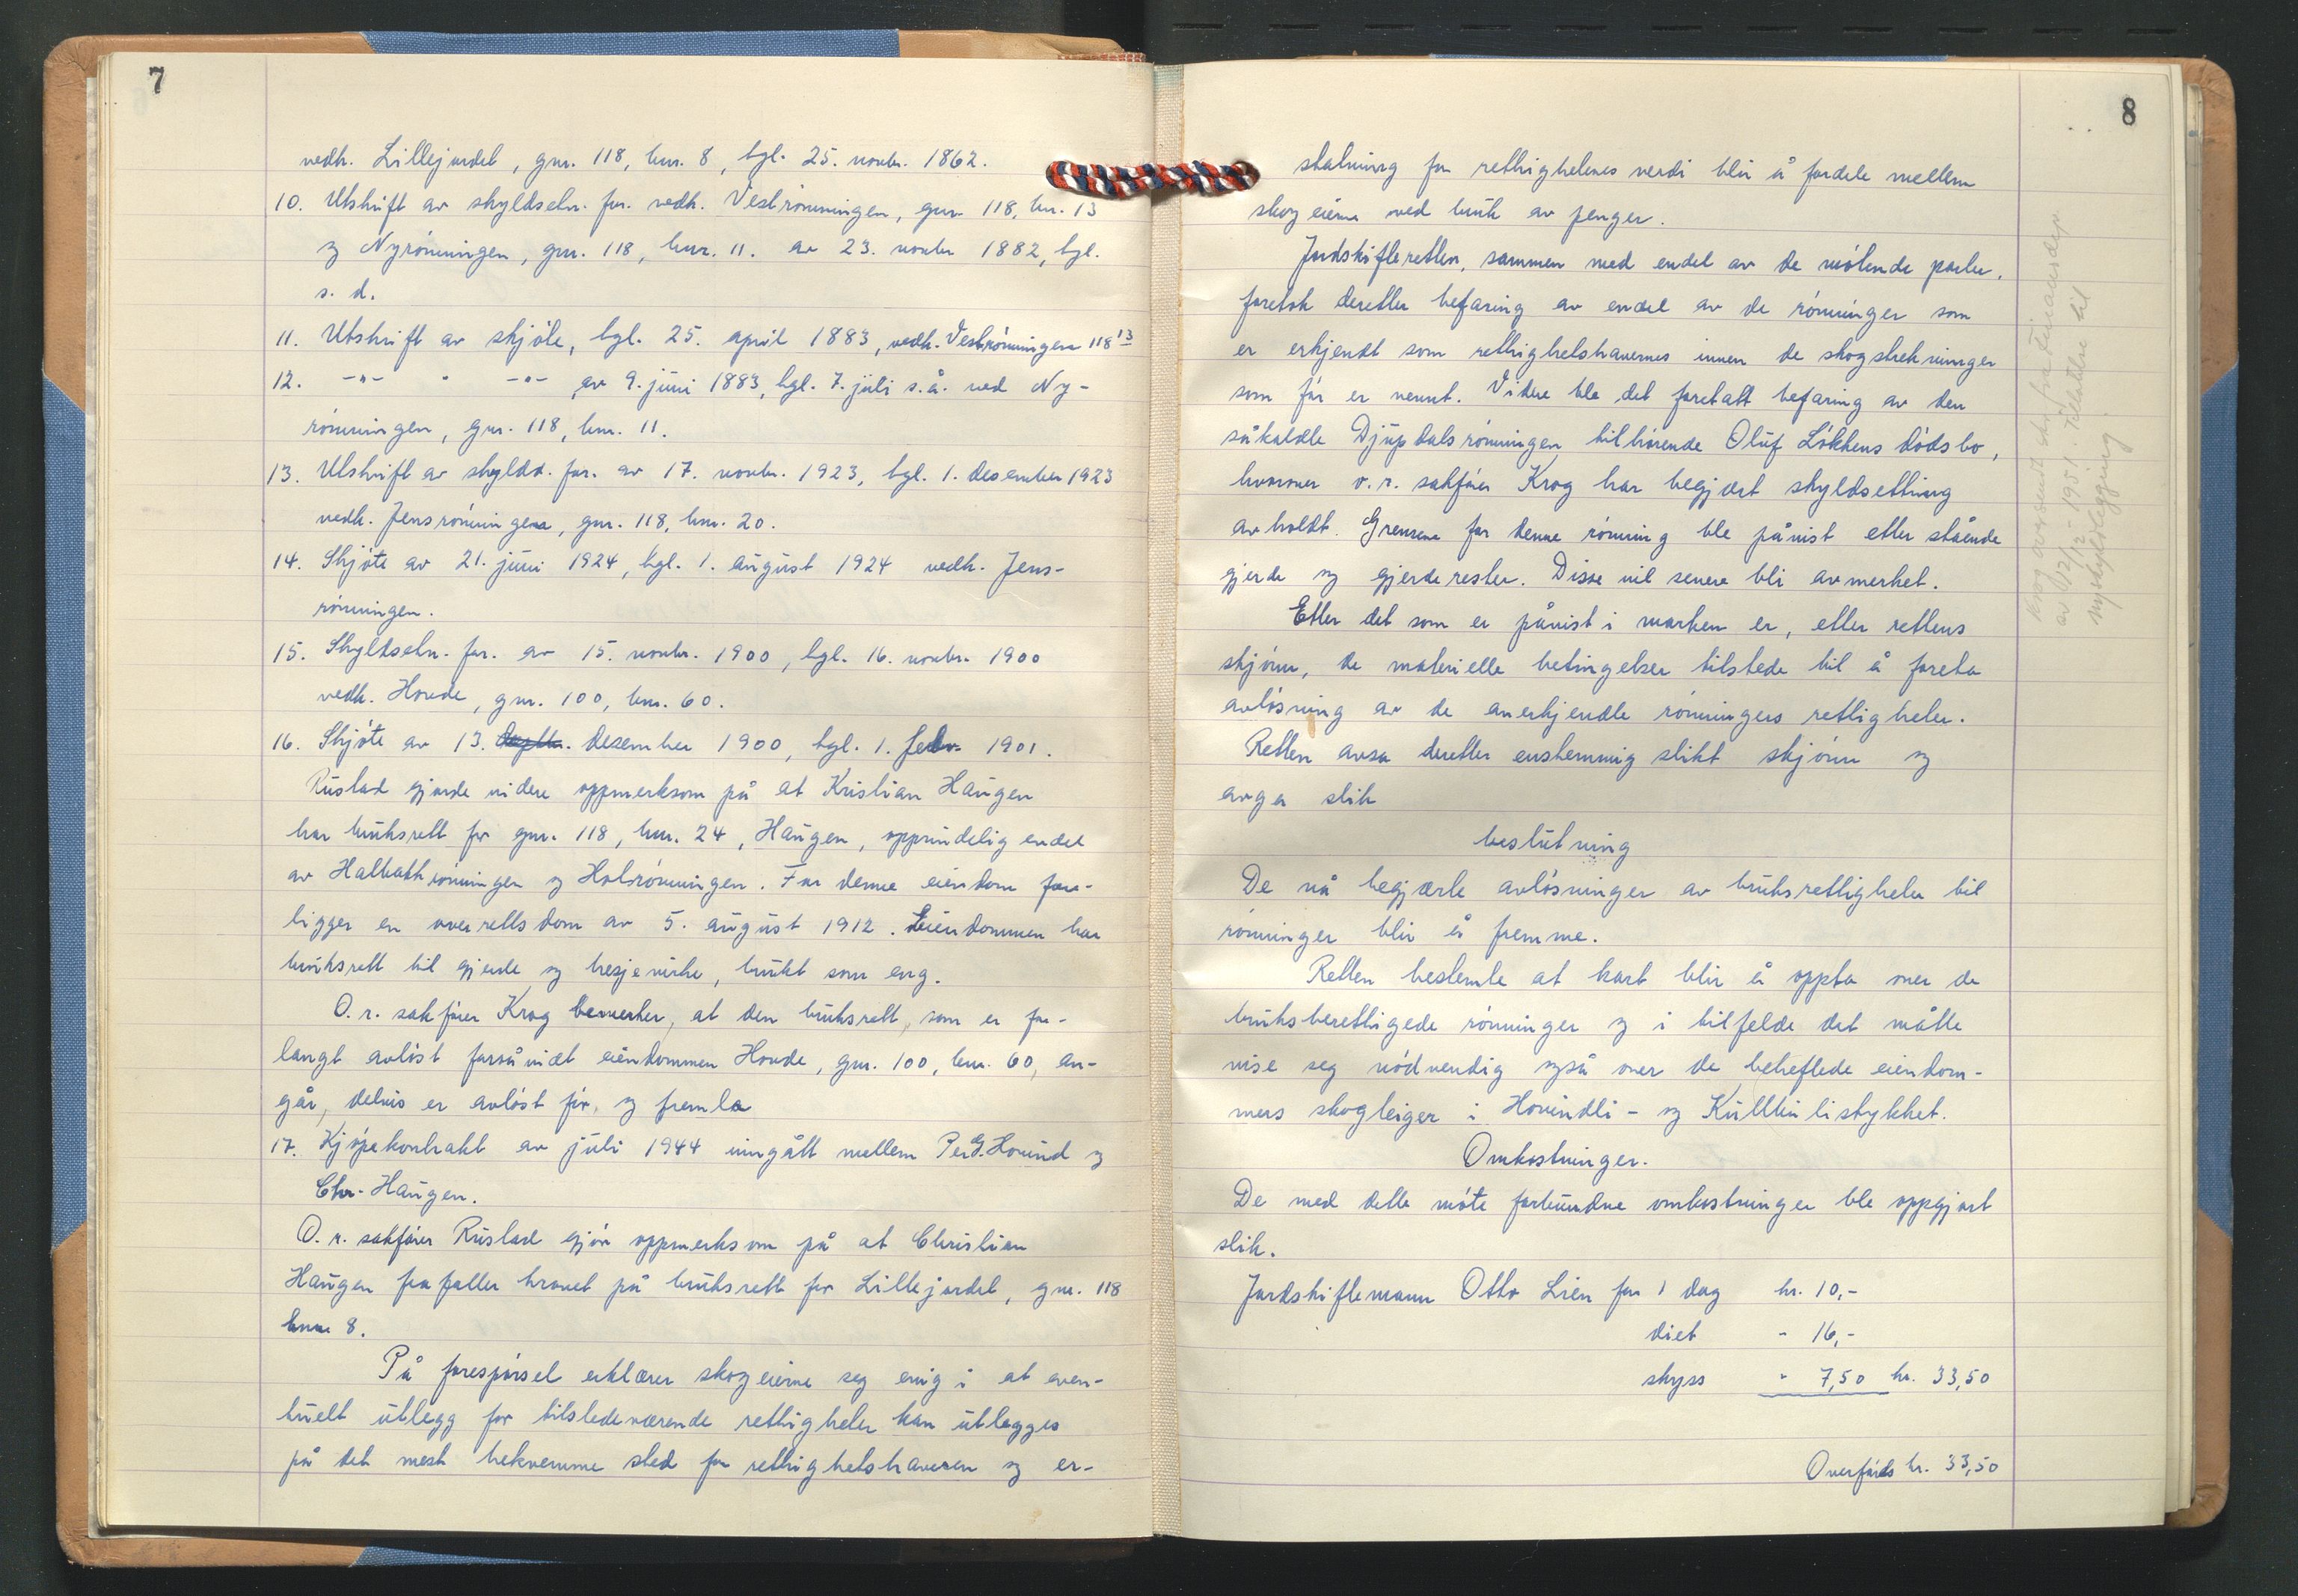 7
vedk. Lillejordet, gnr. 118, bnr. 8, tgl. 25. novbr. 1862.
10. Utskrift av skyldseln. for. vedk. Veströnningen, gnr. 118, bnr. 13
og Nyrönningen, gnr. 118, bnr. 11. av 23. novbr 1882, tgl.
s. d.
11. Utskrift av skjöte, tgl. 25. april 1883, vedk. Veströnningen 118 13
12. -"- " -"- av 9. juni 1883, tgl. 7. juli s.å. ved Ny-
rönningen, gnr. 118, bnr. 11.
13. Utskrift av skyldd. for. av 17. novbr. 1923, tgl. 1. desember 1923
vedk. Jensrönningen, gnr. 118, bnr. 20.
14. Skjöte av 21. juni 1924, tgl. 1. august 1924 vedk. Jens-
rönningen.
15. Skyldseln. for. av 15. novbr. 1900, tgl. 16. novbr. 1900
vedk. Hovde, gnr. 100, bnr. 60.
16. Skjöte av 13. desember 1900, tgl. 1. febr. 1901.
Rustad gjorde videre oppmerksom på at Kristian Haugen
har bruksrett for gnr. 118, bnr. 24, Haugen, opprindelig endel
av Halbakkrönningen og Holsrönningen. For denne eiendom fore-
ligger en overrettsdom av 5. august 1912. Eiendommen har
bruksrett til gjerde og hesjevirke, brukt som eng.
O. r. sakförer Krog bemerker, at den bruksrett, som er for-
langt avlöst forsåvidt eiendommen Hovde, gnr. 100, bnr. 60, an-
går, delvis er avlöst för, og fremla
17. Kjöpekontrakt av juli 1944 inngått mellem Per G. Hovind og
Chr. Haugen.
O. r. sakförer Rustad gjör oppmerksom på at Christian
Haugen frafaller kravet på bruksrett for Lillejordet, gnr. 118
bnr 8.
På forespörsel erklærer skogeierne seg enig i at even-
tuelt utlegg for tilstedeværende rettigheter kan utlegges
på det mest bekvemme sted for rettighetshaveren og er-
8
statning for rettighetenes verdi blir å fordele mellem
skogeierne ved bruk av penger.
Jordskifteretten, sammen med endel av de mötende parter,
foretok deretter befaring av endel av de rönninger som
er erkjendt som rettighetshavernes innen de skogstrekninger
som för er nevnt. Videre ble det foretatt befaring av den
såkaldte Djupdalsrönningen tilhörende Oluf Lökkens dödsbo,
hvorover o.r. sakförer Krog har begjært skyldsetting
avholdt. Grensene for denne rönning ble påvist etter stående
gjerde og gjerderester. Disse vil senere bli avmerket.
Etter det som er påvist i marken er, etter rettens
skjönn, de materielle betingelser tilstede til å foreta
avlösning av de anerkjendte rönningers rettigheter.
Retten avsa deretter enstemmig slikt skjönn og
avga slik
beslutning
De nå begjærte avlösninger av bruksrettigheter til
rönninger blir å fremme.
Retten bestemte at kart blir å oppta over de
bruksberettigede rönninger og i tilfelde det måtte
vise seg nödvendig også over de beheftede eiendom-
mers skogteiger i Hovindli- og Kulltinlistykket.
Omkostninger.
De med dette möte forbundne omkostninger ble oppgjort
slik.
Jordskiftemann Otto Lien for 1 dag kr. 10,-
diet " 16,-
skyss " 7,50 kr. 33,50
Overförds kr. 33,50
av 12/12-1951. Tillatelse til
nyskyldlegging